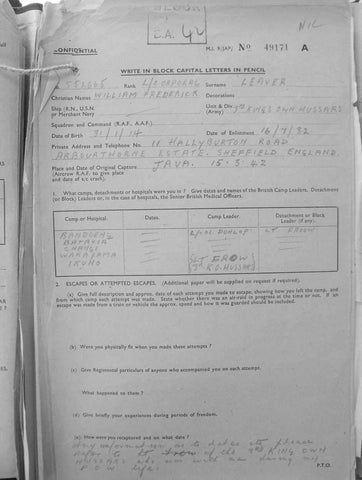 NIL
E.A. 42
CONFIDENTIAL
M.I. 9/JAP/ No 49171 A
WRITE IN BLOCK CAPITAL LETTERS IN PENCIL
Rank L/CORPORAL Surname LEAVER
Christian Names WILLIAM FREDERICK Decorations
Ship (R.N., U.S.N. or Merchant Navy)
Unit & Div. (Army) 3RD KING'S OWN HUSSARS
Squadron and Command (R.A.F., A.A.F.)
Date of Birth 31/1/14 Date of Enlistment 16/9/32
Private Address and Telephone No. 11 HALLYBURTON ROAD
ARBOURTHORNE ESTATE. SHEFFIELD ENGLAND
Place and Date of Original Capture JAVA. 15.3.42
(Aircrew R.A.F. to give place and date of a/c crash).
1. What camps, detachments or hospitals were you in? Give dates and names of the British Camp Leaders, Detachment
(or Block) Leaders or, in the case of hospitals, the Senior British Medical Officers.
Camp or Hospital. Dates. Camp Leader. Detachment or Block Leader (if any).
BANDOENG — L/COL DUNLOP LT EROW
BATAVIA —
CHANGI —
WAKAYAMA — LT EROW
IKUNO — 3RD K.O. HUSSARS
2. ESCAPES OR ATTEMPTED ESCAPES. (Additional paper will be supplied on request if required).
(a) Give full description and approx. date of each attempt you made to escape, showing how you left the camp, and
from which camp each attempt was made. State whether there was an air-raid in progress at the time or not. If an
escape was made from a train or vehicle the approx. speed and how it was guarded should be included.
(b) Were you physically fit when you made these attempts?
(c) Give Regimental particulars of anyone who accompanied you on each attempt.
What happened to them?
(d) Give briefly your experiences during periods of freedom.
(e) How were you recaptured and on what date?
Any information as to dates etc please
refer to Lt Erow of the 3RD KING OWN
HUSSARS who was with me during my
P.O.W life.
P.T.O.